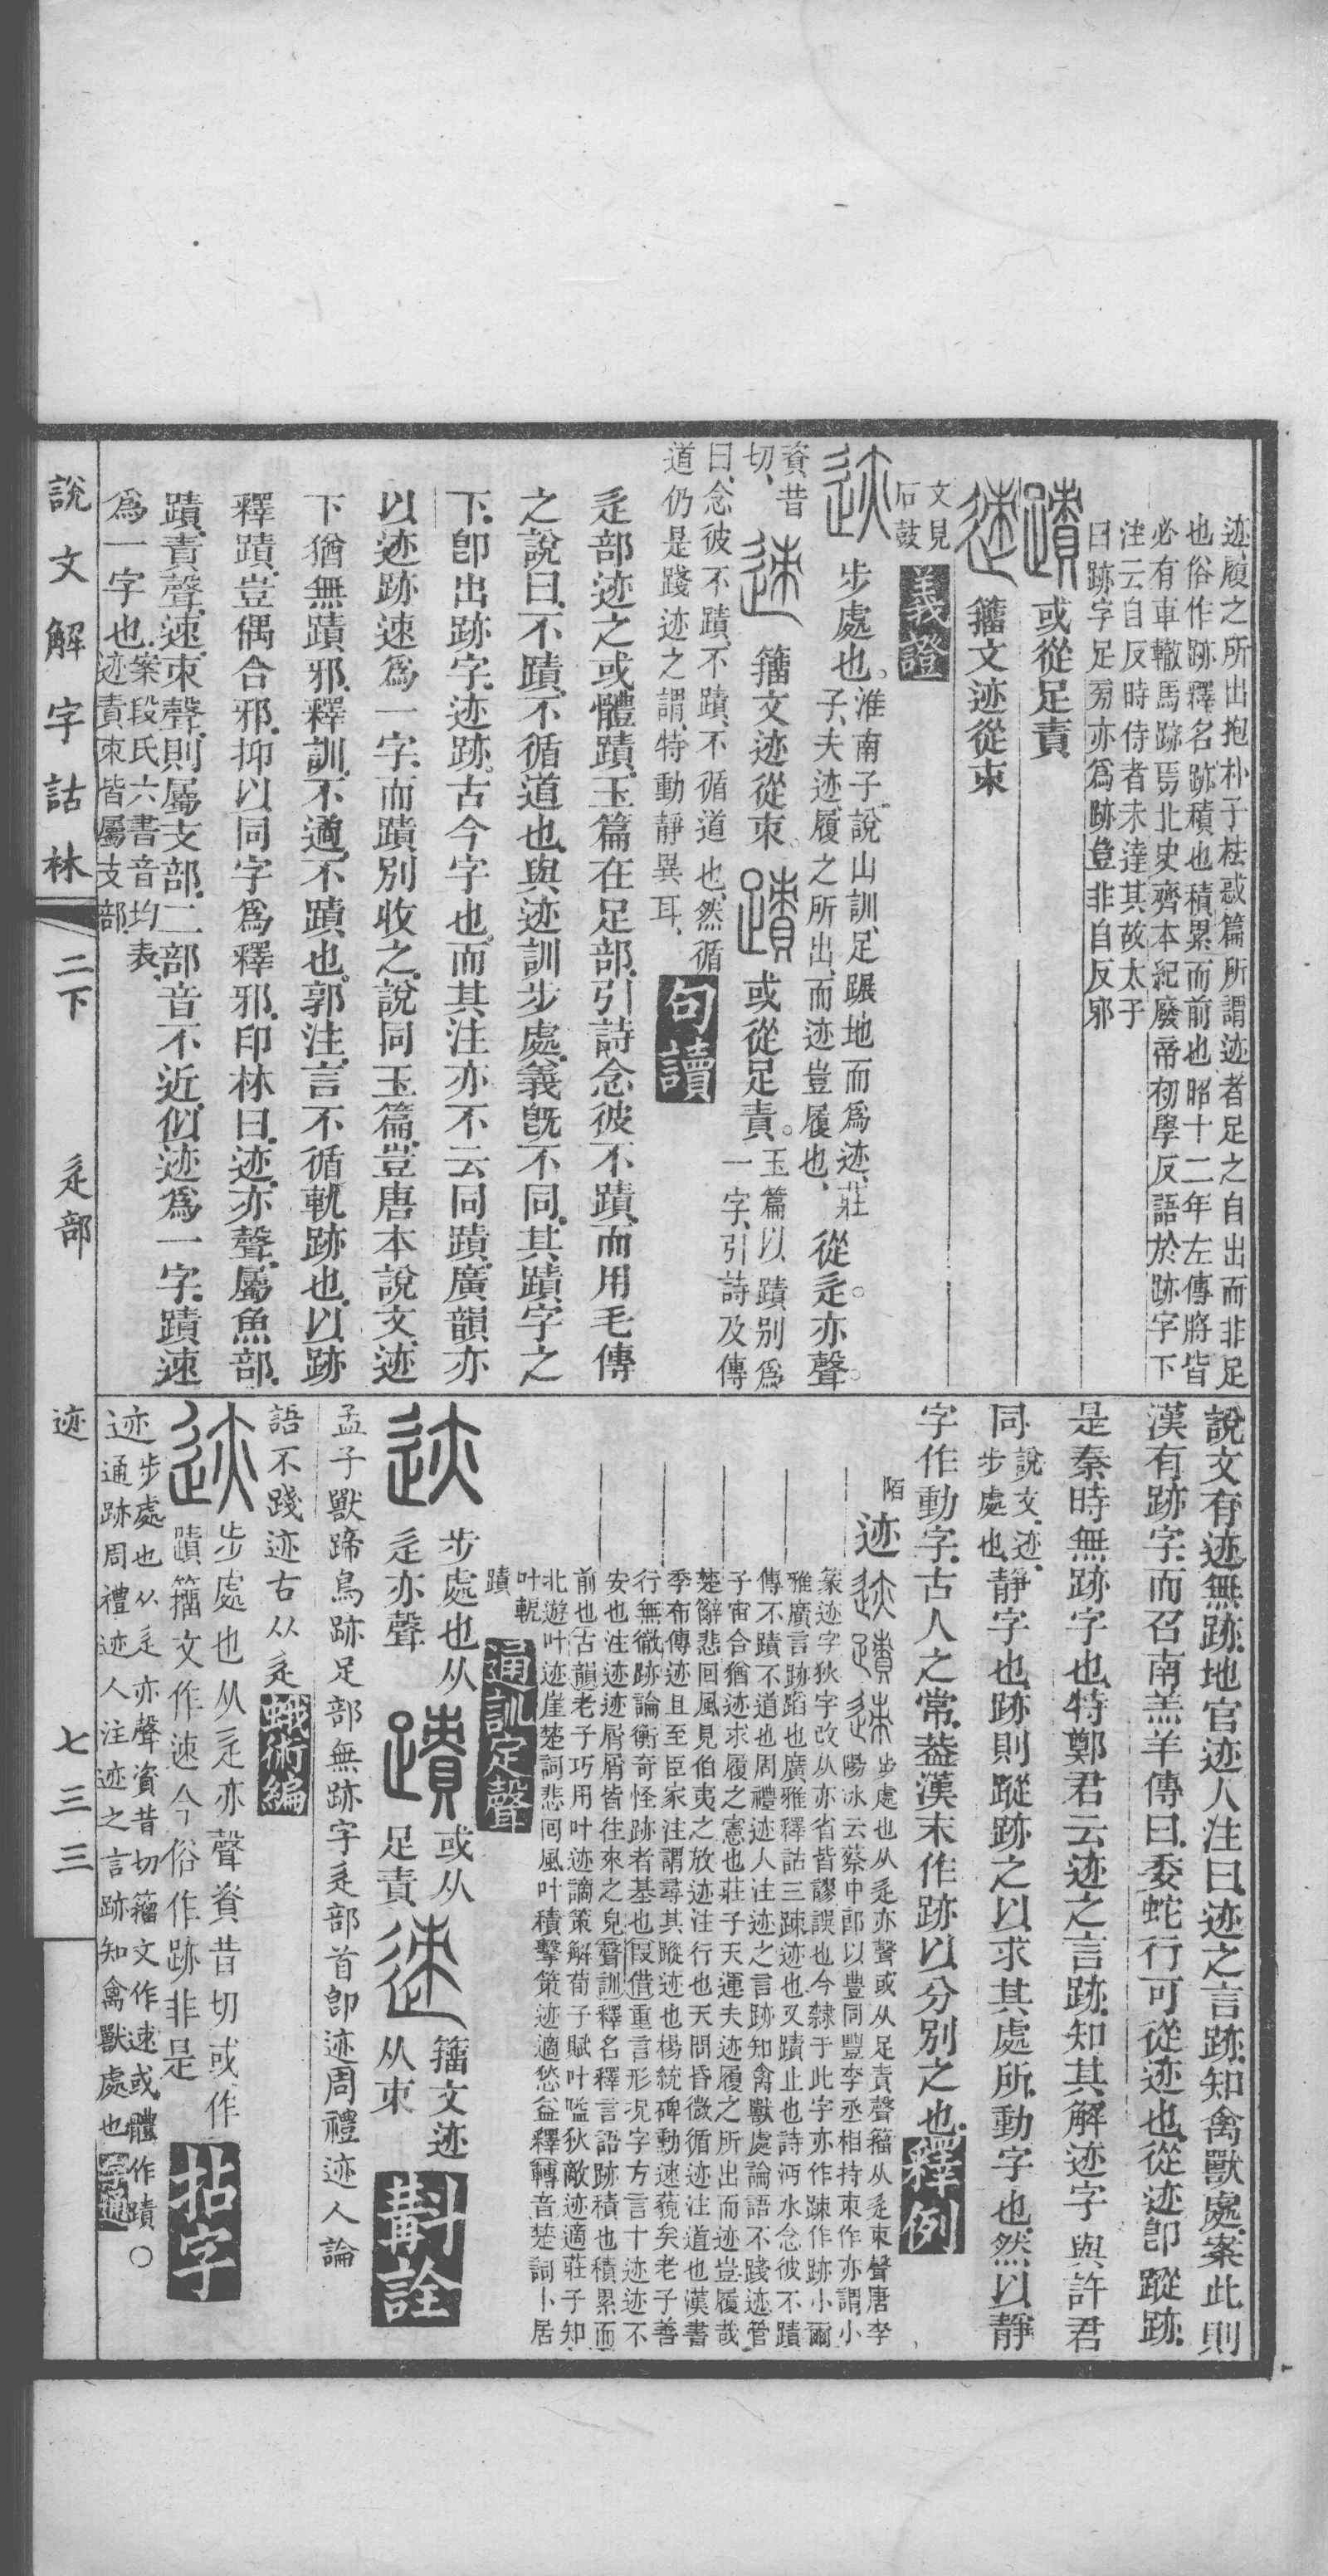 迹履之所出抱朴子袪惑篇所謂迹者足之自出而非足
也俗作跡釋名跡積也積累而前也昭十二年左傳將皆
必有車轍馬跡焉北史齊本紀廢帝初學反語於跡字下
注云自反時侍者未達其故太子
曰跡字足旁亦爲跡豈非自反邪
蹟或從足責
𨒪籀文迹從朿
文見
石鼓
義證
迹步處也。
淮南子說山訓、足蹍地而爲迹、莊
子、夫迹、履之所出、而迹豈履也、
從辵。亦聲。
資昔
切、
𨒪籀文迹從朿。
蹟或從足責。
玉篇以蹟別爲
一字、引詩及傳
曰、念彼不蹟、不蹟、不循道也、然循
道仍是踐迹之謂、特動靜異耳、
句讀
辵部迹之或體蹟玉篇在足部引詩念彼不蹟而用毛傳
之說曰不蹟不循道也與迹訓步處義旣不同其蹟字之
下卽出跡字迹跡古今字也而其注亦不云同蹟廣韻亦
以迹跡𨒪爲一字而蹟別收之說同玉篇豈唐本說文迹
下猶無蹟邪釋訓不遹不蹟也郭注言不循軌跡也以跡
釋蹟豈偶合邪抑以同字爲釋邪印林曰迹亦聲屬魚部
蹟責聲𨒪朿聲則屬支部二部音不近似迹爲一字蹟𨒪
爲一字也
案段氏六書音均表
迹責朿皆屬支部
說文解字詁林 二下 辵部
說文有迹無跡地官迹人注曰迹之言跡知禽獸處案此則
漢有跡字而召南羔羊傳曰委蛇行可從迹也從迹卽蹤跡
是秦時無跡字也特鄭君云迹之言跡知其解迹字與許君
同
說文迹
步處也
靜字也跡則蹤跡之以求其處所動字也然以靜
字作動字古人之常葢漢末作跡以分別之也
釋例
陌
迹
迹蹟𨒪
步處也从辵亦聲或从足責聲籀从辵朿聲唐李
陽冰云蔡中郎以豐同豐李丞相持朿作亦謂小
篆迹字狄字改从亦省皆謬誤也今隸于此字亦作踈作跡小爾
雅廣言跡蹈也廣雅釋詁三踈迹也又蹟止也詩沔水念彼不蹟
傳不蹟不道也周禮迹人注迹之言跡知禽獸處論語不踐迹管
子宙合猶迹求履之憲也莊子天運夫迹履之所出而迹豈履哉
楚辭悲回風見伯夷之放迹注行也天問昏微循迹注道也漢書
季布傳迹且至臣家注謂尋其蹤迹也楊統碑勳速藐矣老子善
行無徹跡論衡奇怪跡者基也叚借重言形況字方言十迹迹不
安也注迹迹屑屑皆往來之皃聲訓釋名釋言語跡積也積累而
前也古韻老子巧用叶迹謫策解荀子賦叶嗌狄敵迹適莊子知
北遊叶迹崖楚詞悲回風叶積擊策迹適愁益釋轉音楚詞卜居
叶軛
蹟
通訓定聲
迹步處也从
辵亦聲
蹟或从
足責
𨒪籀文迹
从朿
斠詮
孟子獸蹄鳥跡足部無跡字辵部首卽迹周禮迹人論
語不踐迹古从辵
蛾術編
迹步處也从辵亦聲資昔切或作
蹟籀文作𨒪今俗作跡非是
拈字
迹
步處也从辵亦聲資昔切籀文作𨒪或體作蹟〇
通跡周禮迹人注迹之言跡知禽獸處也
迹 七三三